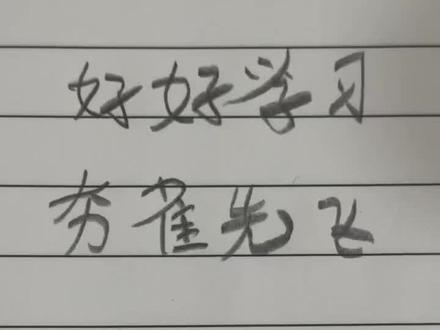 好好学习
夯雀先飞